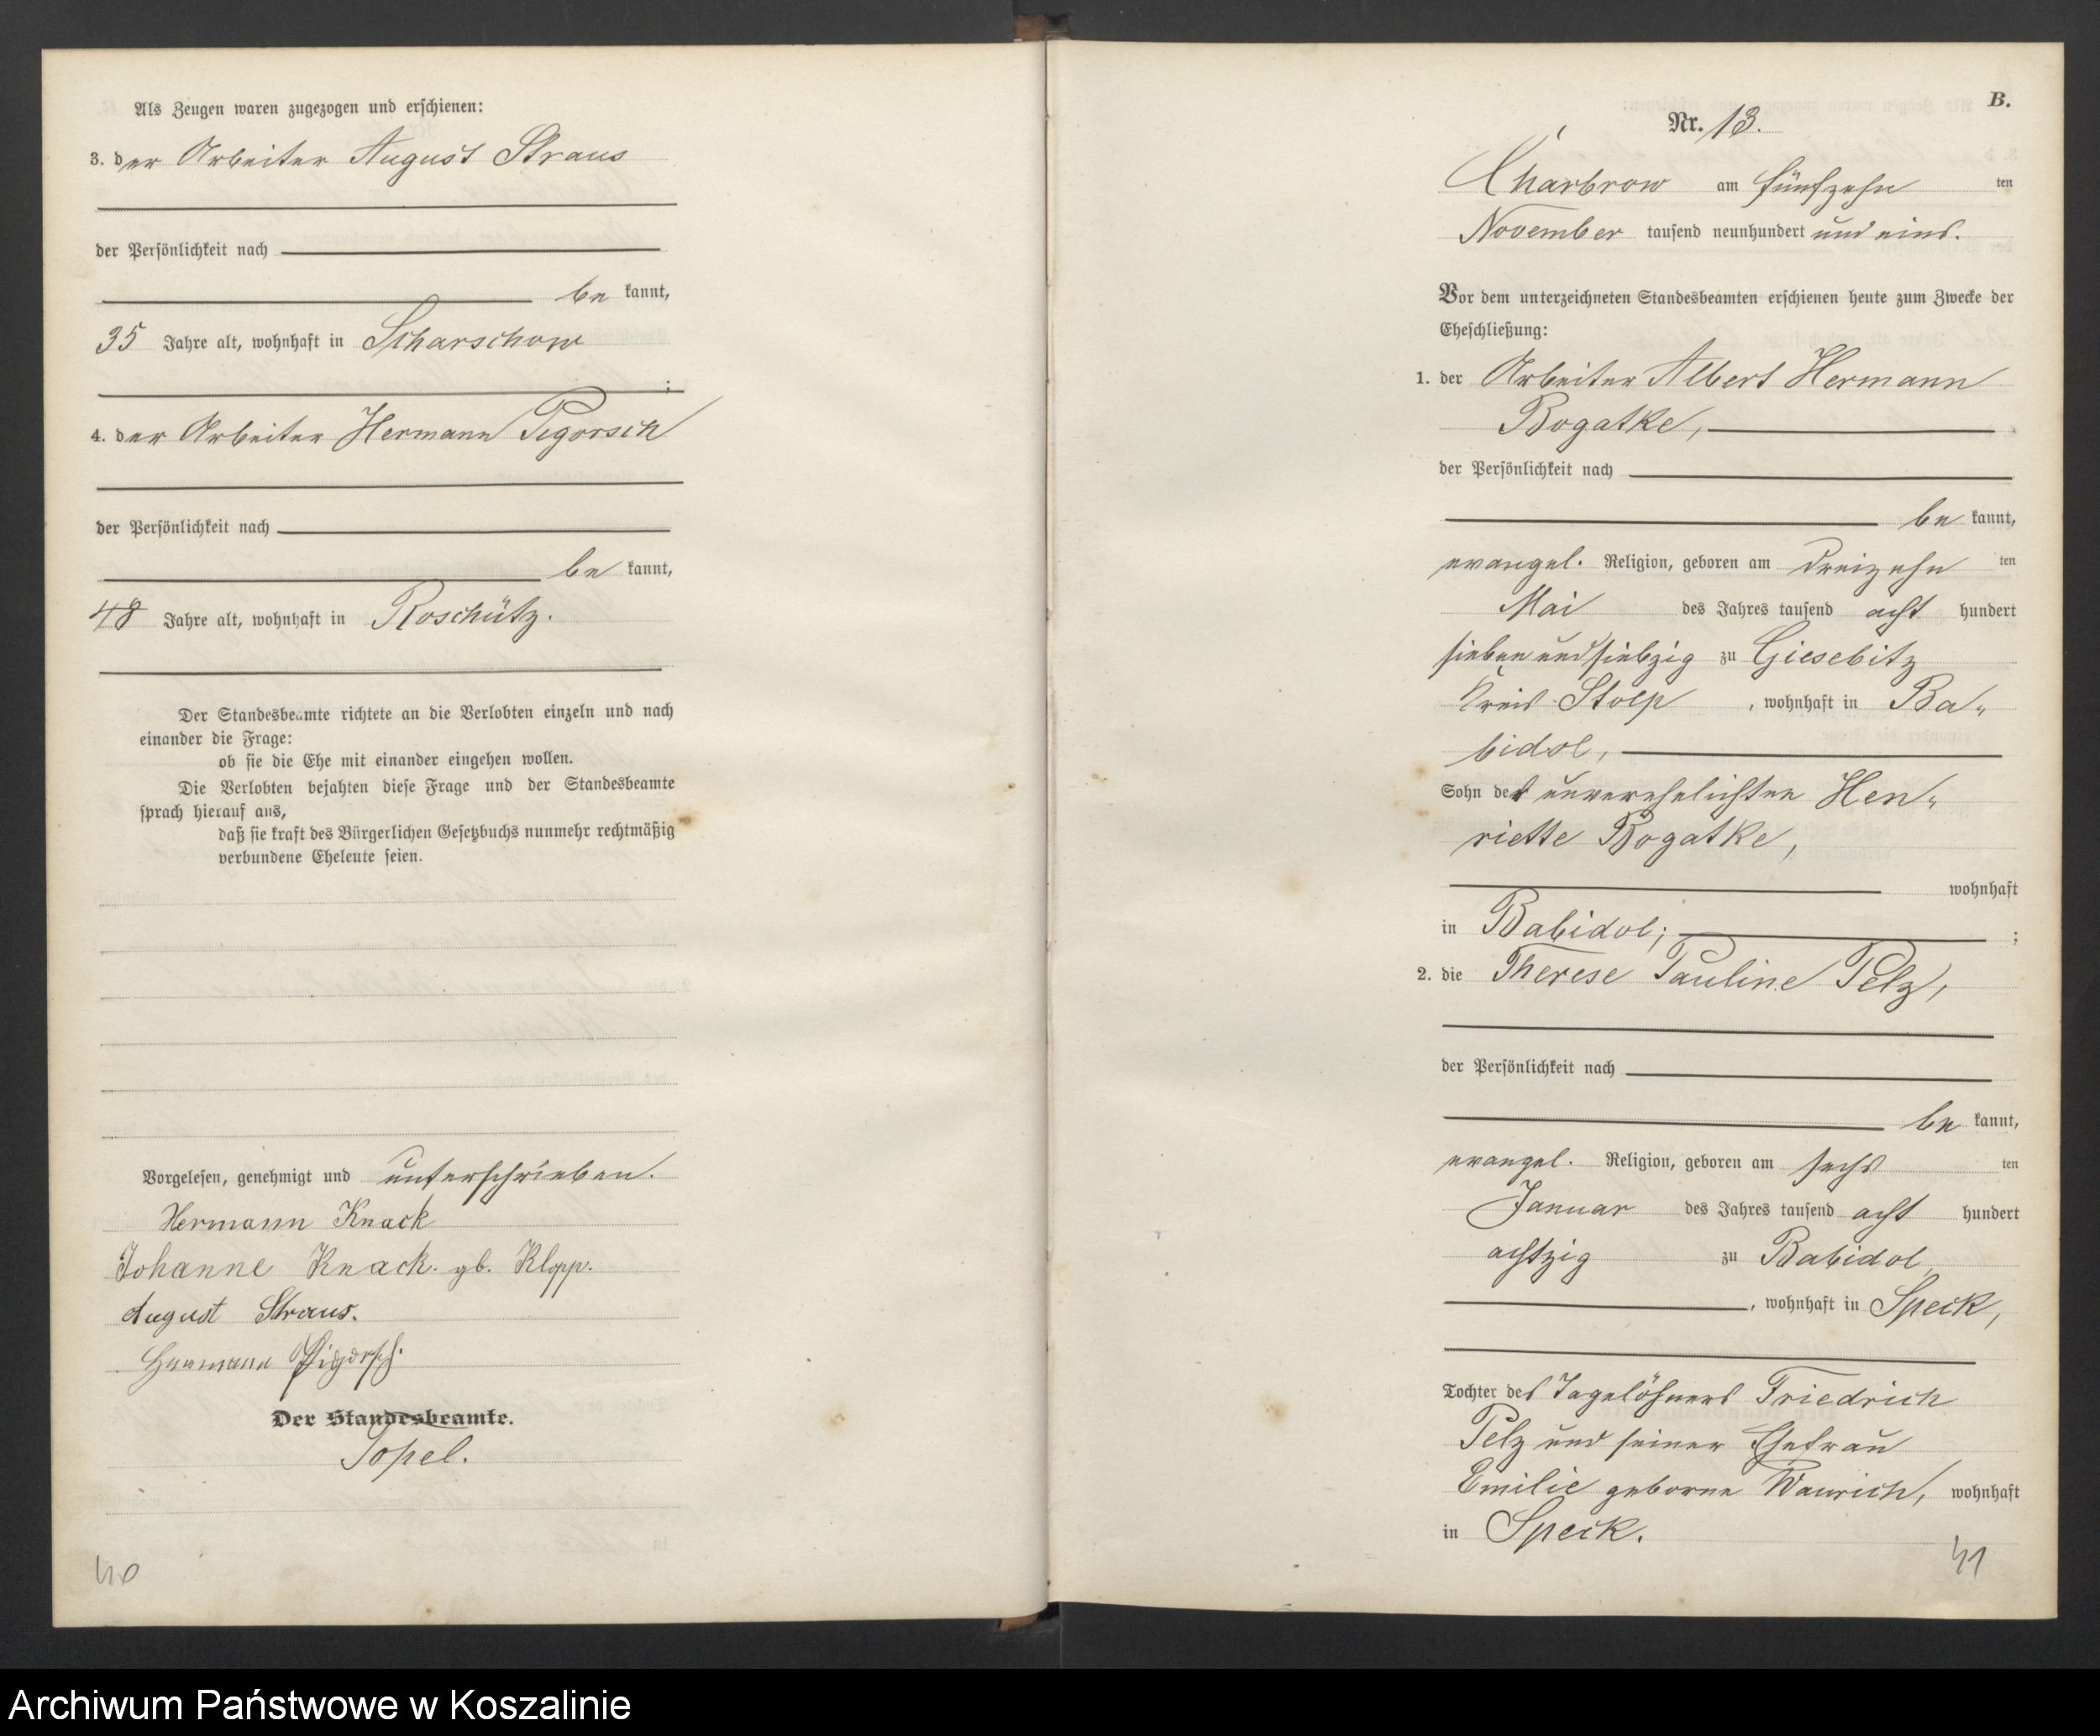 Als Zeugen waren zugezogen und erschienen:
3. der Arbeiter August Straus
der Persönlichkeit nach
be kannt,
35 Jahre alt, wohnhaft in Scharschow
;
4. der Arbeiter Hermann Pigorsch
der Persönlichkeit nach
be kannt,
48 Jahre alt, wohnhaft in Roschütz.
Der Standesbeamte richtete an die Verlobten einzeln und nach
einander die Frage:
ob sie die Ehe mit einander eingehen wollen.
Die Verlobten bejahten diese Frage und der Standesbeamte
sprach hierauf aus,
daß sie kraft des Bürgerlichen Gesetzbuchs nunmehr rechtmäßig
verbundene Eheleute seien.
Vorgelesen, genehmigt und unterschrieben.
Hermann Knack
Johanne Knack gb. Klopp.
August Straus.
Hermann Pigorsch.
Der Standesbeamte.
Topel.
40
B.
Nr. 13.
Charbrow am fünfzehn ten
November tausend neunhundert und eins.
Vor dem unterzeichneten Standesbeamten erschienen heute zum Zwecke der
Eheschließung:
1. der Arbeiter Albert Hermann
Bogatke,
der Persönlichkeit nach
be kannt,
evangel. Religion, geboren am dreizehn ten
Mai des Jahres tausend acht hundert
siebenundsiebzig zu Giesebitz
Kreis Stolp, wohnhaft in Ba„
bidol,
Sohn der unverehelichten Hen„
riette Bogatke,
wohnhaft
in Babidol; ;
2. die Therese Pauline Pelz,
der Persönlichkeit nach
be kannt,
evangel. Religion, geboren am sechs ten
Januar des Jahres tausend acht hundert
achtzig zu Babidol,
, wohnhaft in Speck,
Tochter des Tagelöhners Friedrich
Pelz und seiner Ehefrau
Emilie geborne Waurich, wohnhaft
in Speck.
41
Archiwum Państwowe w Koszalinie